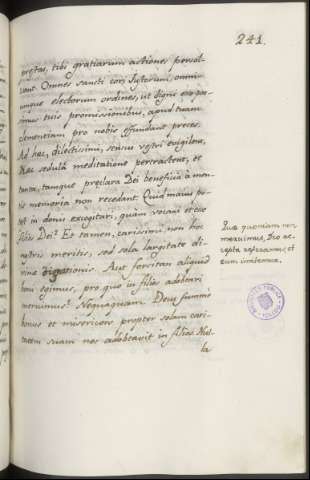 241.
prestas, tibi gratiarum actiones persol
vant. Omnes sancti tori justorum, omni
umque electorum ordines, ut digni effi pos
simus tuis promissionibus, apud tuam
clementiam pro nobis effundant preces.
Ad hoc, dilectissimi, sensus vestri evigilent,
haec sedula meditatione pertractent, et
tanta, tamque preclara Dei beneficia a men
tis memoria non recedant. Quid maius pot
est in donis excogitari, quam vocari et esse
filios Dei? Et tamen, carissimi non hoc
nostris meritis, sed sola largitate di
vinae dignationis. Aut forsitan aliquid
boni egimus, pro quo in filios adoptari
meruimus? Nequaquam. Deus summe
bonus et misericors propter solam cari
tatem suam nos adobtavit in filios. Nul
la
Quae quoniam non
meruimus, Deo ac
cepta referamus, et
eum imitemur.